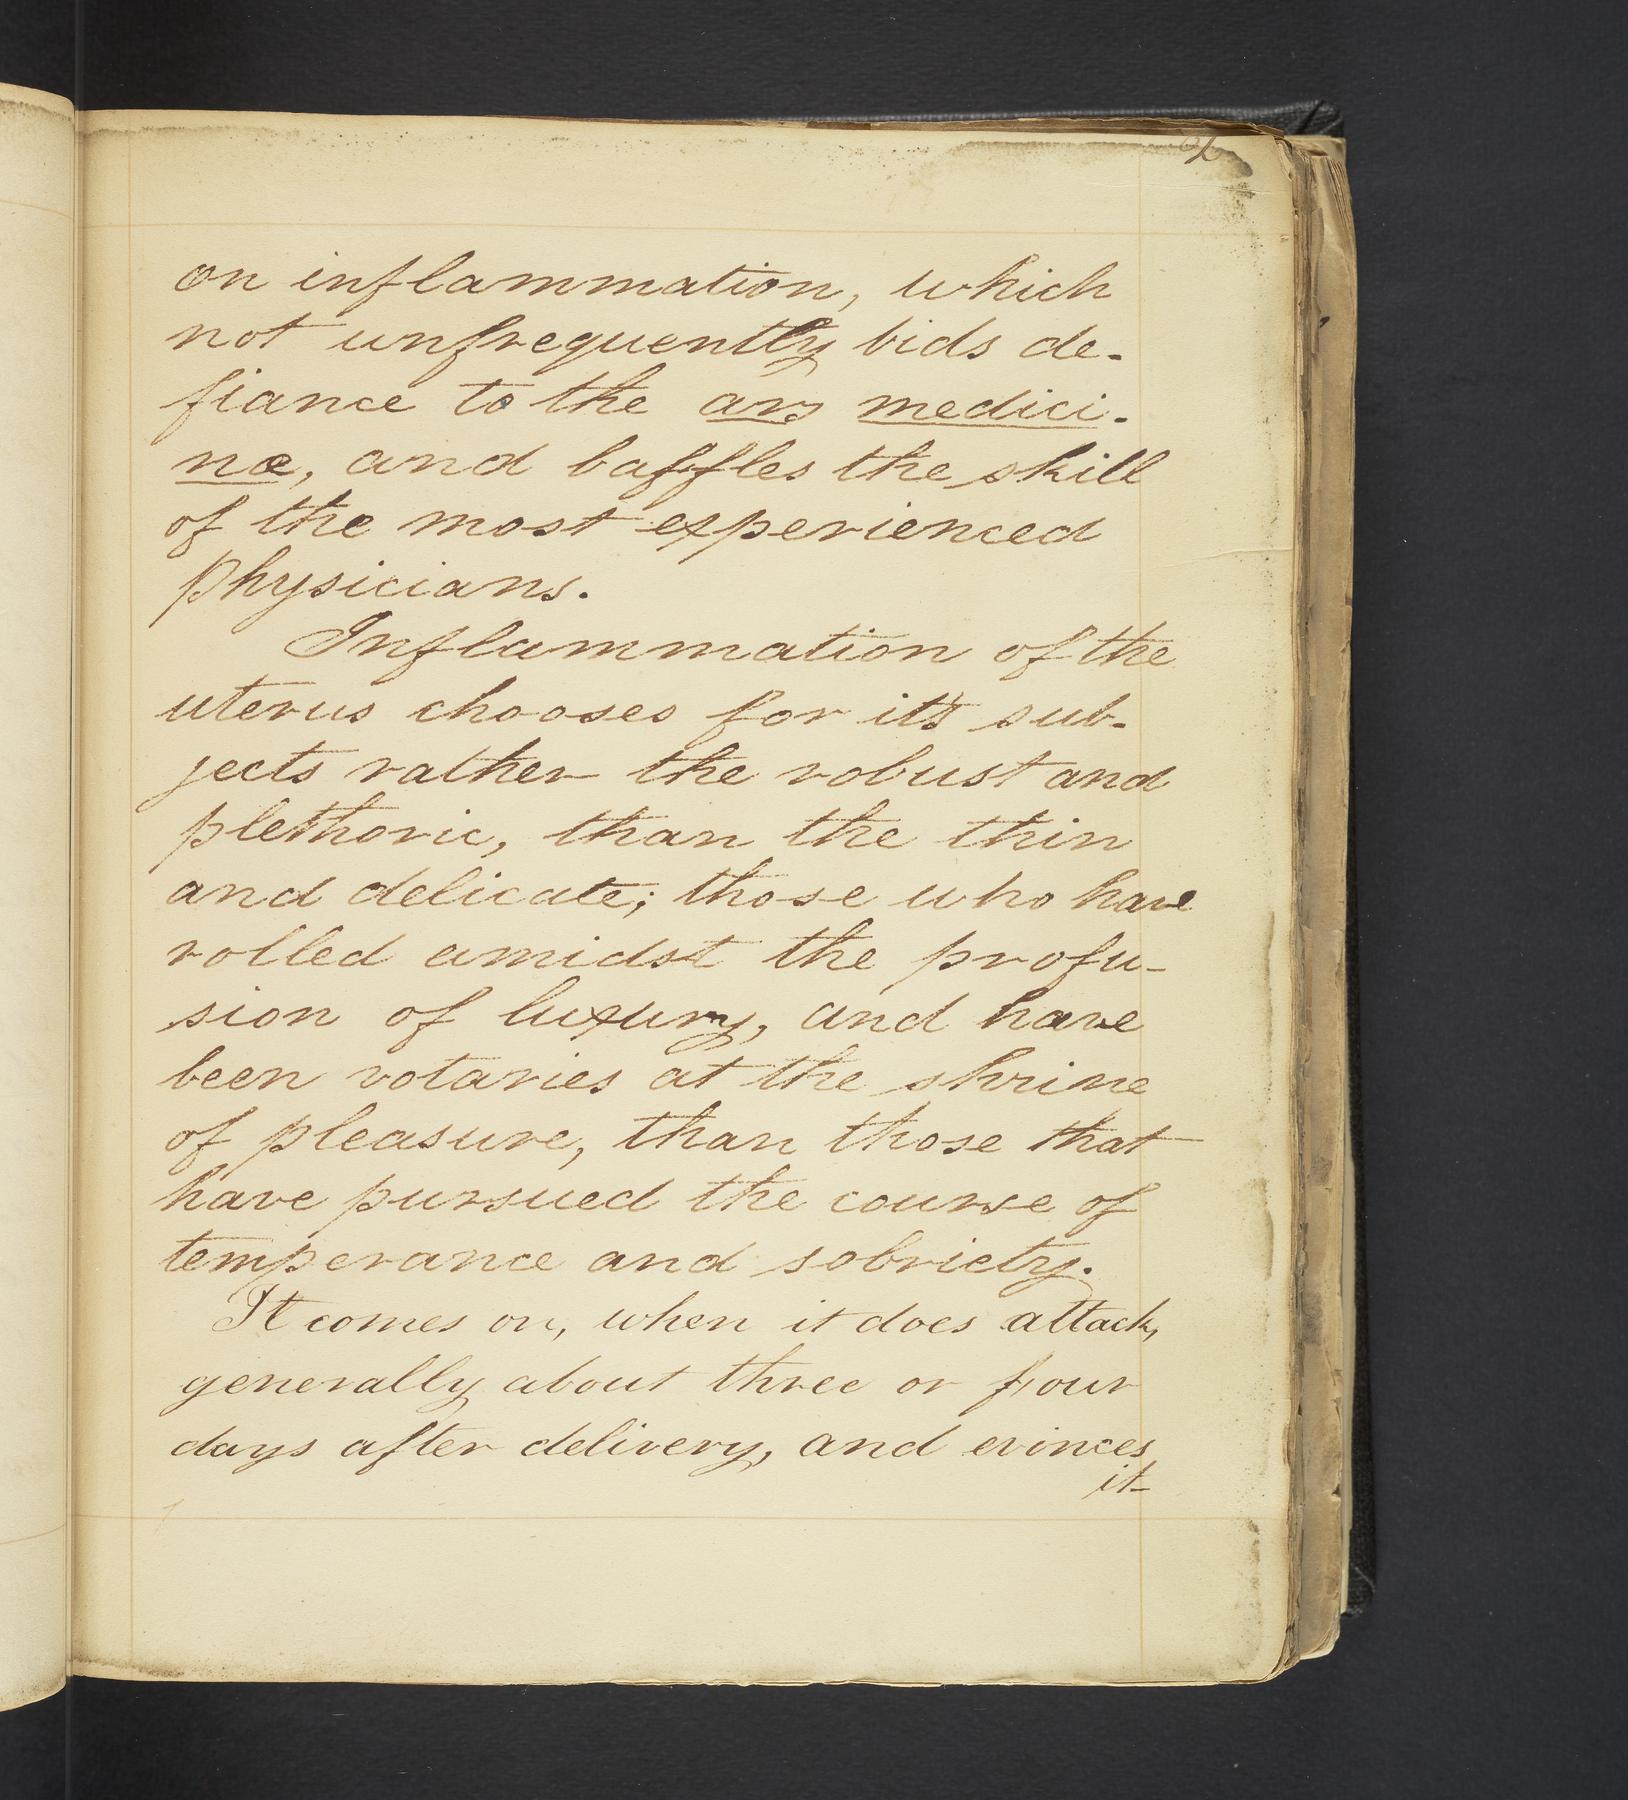 on inflammation, which
not unfrequently bids de-
fiance to the ars medici-
næ, and baffles the skill
of the most experienced
physicians.
Inflammation of the
uterus chooses for it's sub-
jects rather the robust and
plethoric, than the thin
and delicate; those who have
rolled amidst the profu-
sion of luxury, and have
been votaries at the shrine
of pleasure, than those that
have pursued the course of
temperance and sobriety.
It comes on, when it does attack,
generally about three or four
days after delivery, and evinces
it